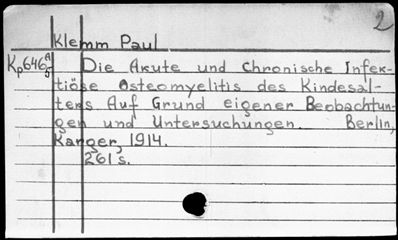 2
Klemm Paul
Kp646 A/5 Die Akute und Chronische Infek-
tiöse Osteomyelitis des Kindesal-
ters Auf Grund eigener Beobachtun-
gen und Untersuchungen. Berlin,
Karger, 1914.
261 s.